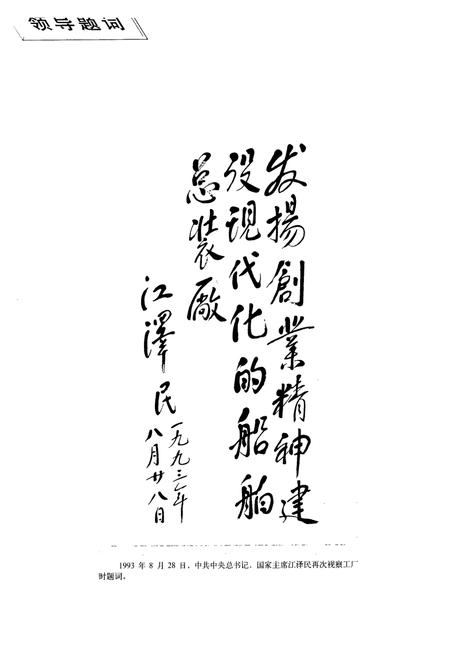 领导题词
发揚創業精神建
设現代化的船舶
总装廠
江澤民
一九九三年
八月廿八日
1993 年 8 月 28 日，中共中央总书记、国家主席江泽民再次视察工厂
时题词。